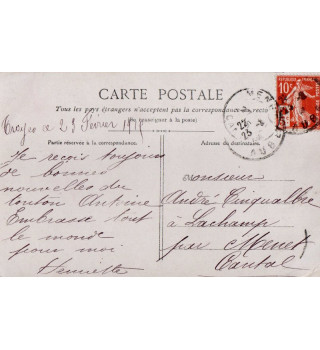 CARTE POSTALE
Tous les pays étrangers n'acceptent pas la correspondance au recto
(Se renseigner à la poste)
Troyes ce 23 Février
Partie réservée à la correspondance.
Adresse du destinataire.
Je reçois toujours
de bonnes
nouvelles du
tonton Antoine
Embrasse tout
le monde
pour moi
Henriette
Monsieur
André Cinqualbre
à Lachamp
par Menet
Cantal
10